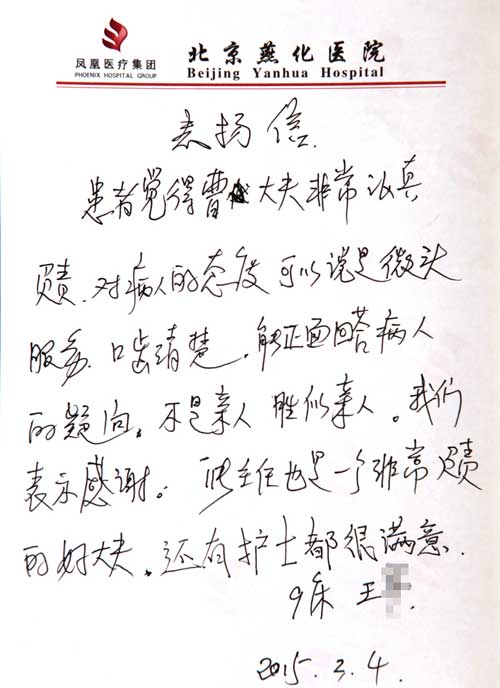 凤凰医疗集团
PHOENIX HOSPITAL GROUP
北京燕化医院
Beijing Yanhua Hospital
表扬信
患者觉得曹大夫非常认真
负责、对病人的态度可以说是微头
服务、口齿清楚，能正面回答病人
的疑问。不是亲人胜似亲人。我们
表示感谢。主任也是一个非常负责
的好大夫，还有护士都很满意。
9床 王
2015.3.4.